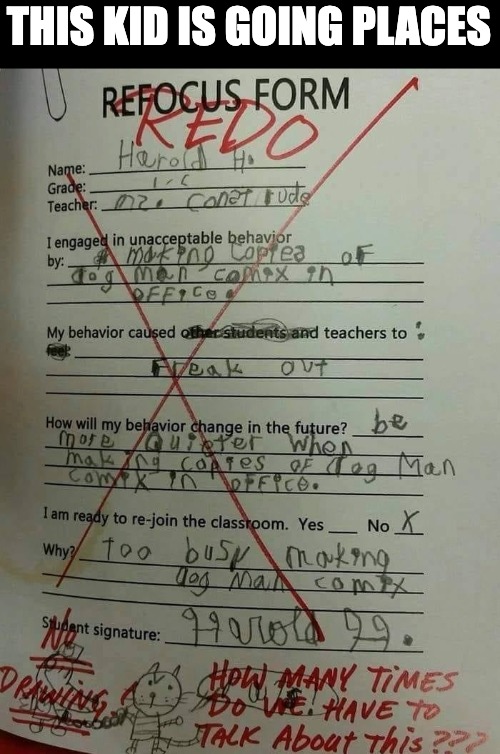 THIS KID IS GOING PLACES
REFOCUS FORM
REDO
Name: Harold H.
Grade:
Teacher: mr.
I engaged in unacceptable behavior
by: making copies of
dog man comix in
office.
My behavior caused other students and teachers to :
feel:
Freak out
How will my behavior change in the future? be
more quieter when
making copies of dog Man
comix in office.
I am ready to re-join the classroom. Yes ___ No X
Why? too busy making
dog Man comix
Student signature: Harold H.
No
DRAWING!
HOW MANY TiMES
Do WE HAVE TO
TALK About This???